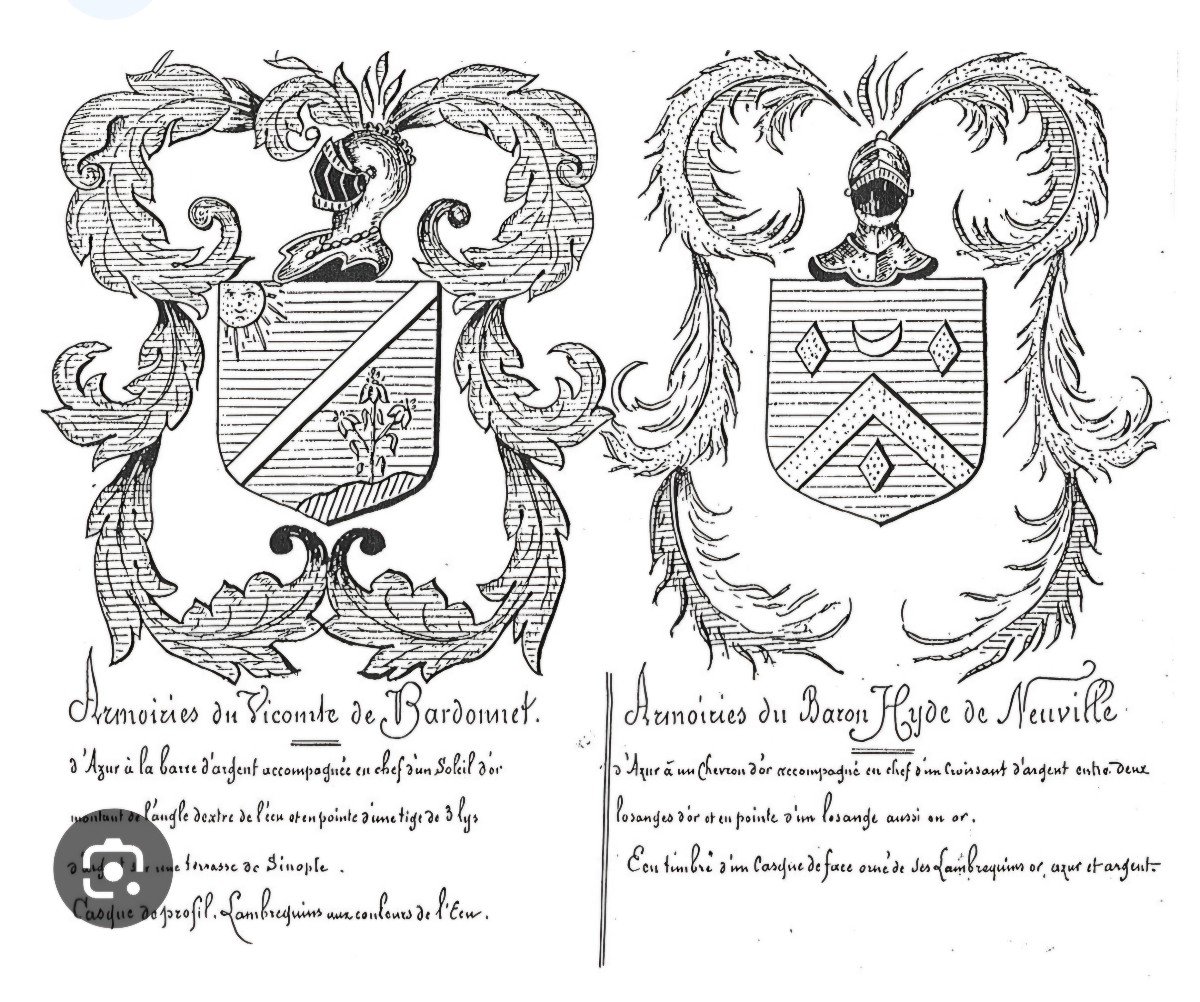 Armoiries du Vicomte de Bardonnet.
d'Azur à la barre d'argent accompagnée en chef d'un Soleil d'or
montant de l'angle dextre de l'écu et en pointe d'une tige de 3 lys
d'argent sur une terrasse de Sinople.
Casque de profil. Lambrequins aux couleurs de l'Ecu.
Armoiries du Baron Hyde de Neuville
d'Azur à un Chevron d'or accompagné en chef d'un Croissant d'argent entre deux
losanges d'or et en pointe d'un losange aussi en or.
Ecu timbré d'un Casque de face orné de ses Lambrequins or, azur et argent.